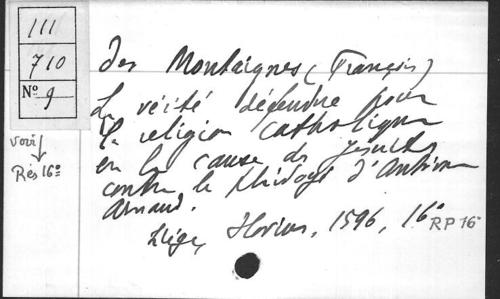 111
710
Nº 9
voir
Rés 16º
Des Montaignes (François)
La vérité défendue pour
la religion catholique
en la cause des Jésuites
contre le plaidoyé d'Antoine
Arnaud.
Liége, Hovius, 1596, 16º
RP 16º